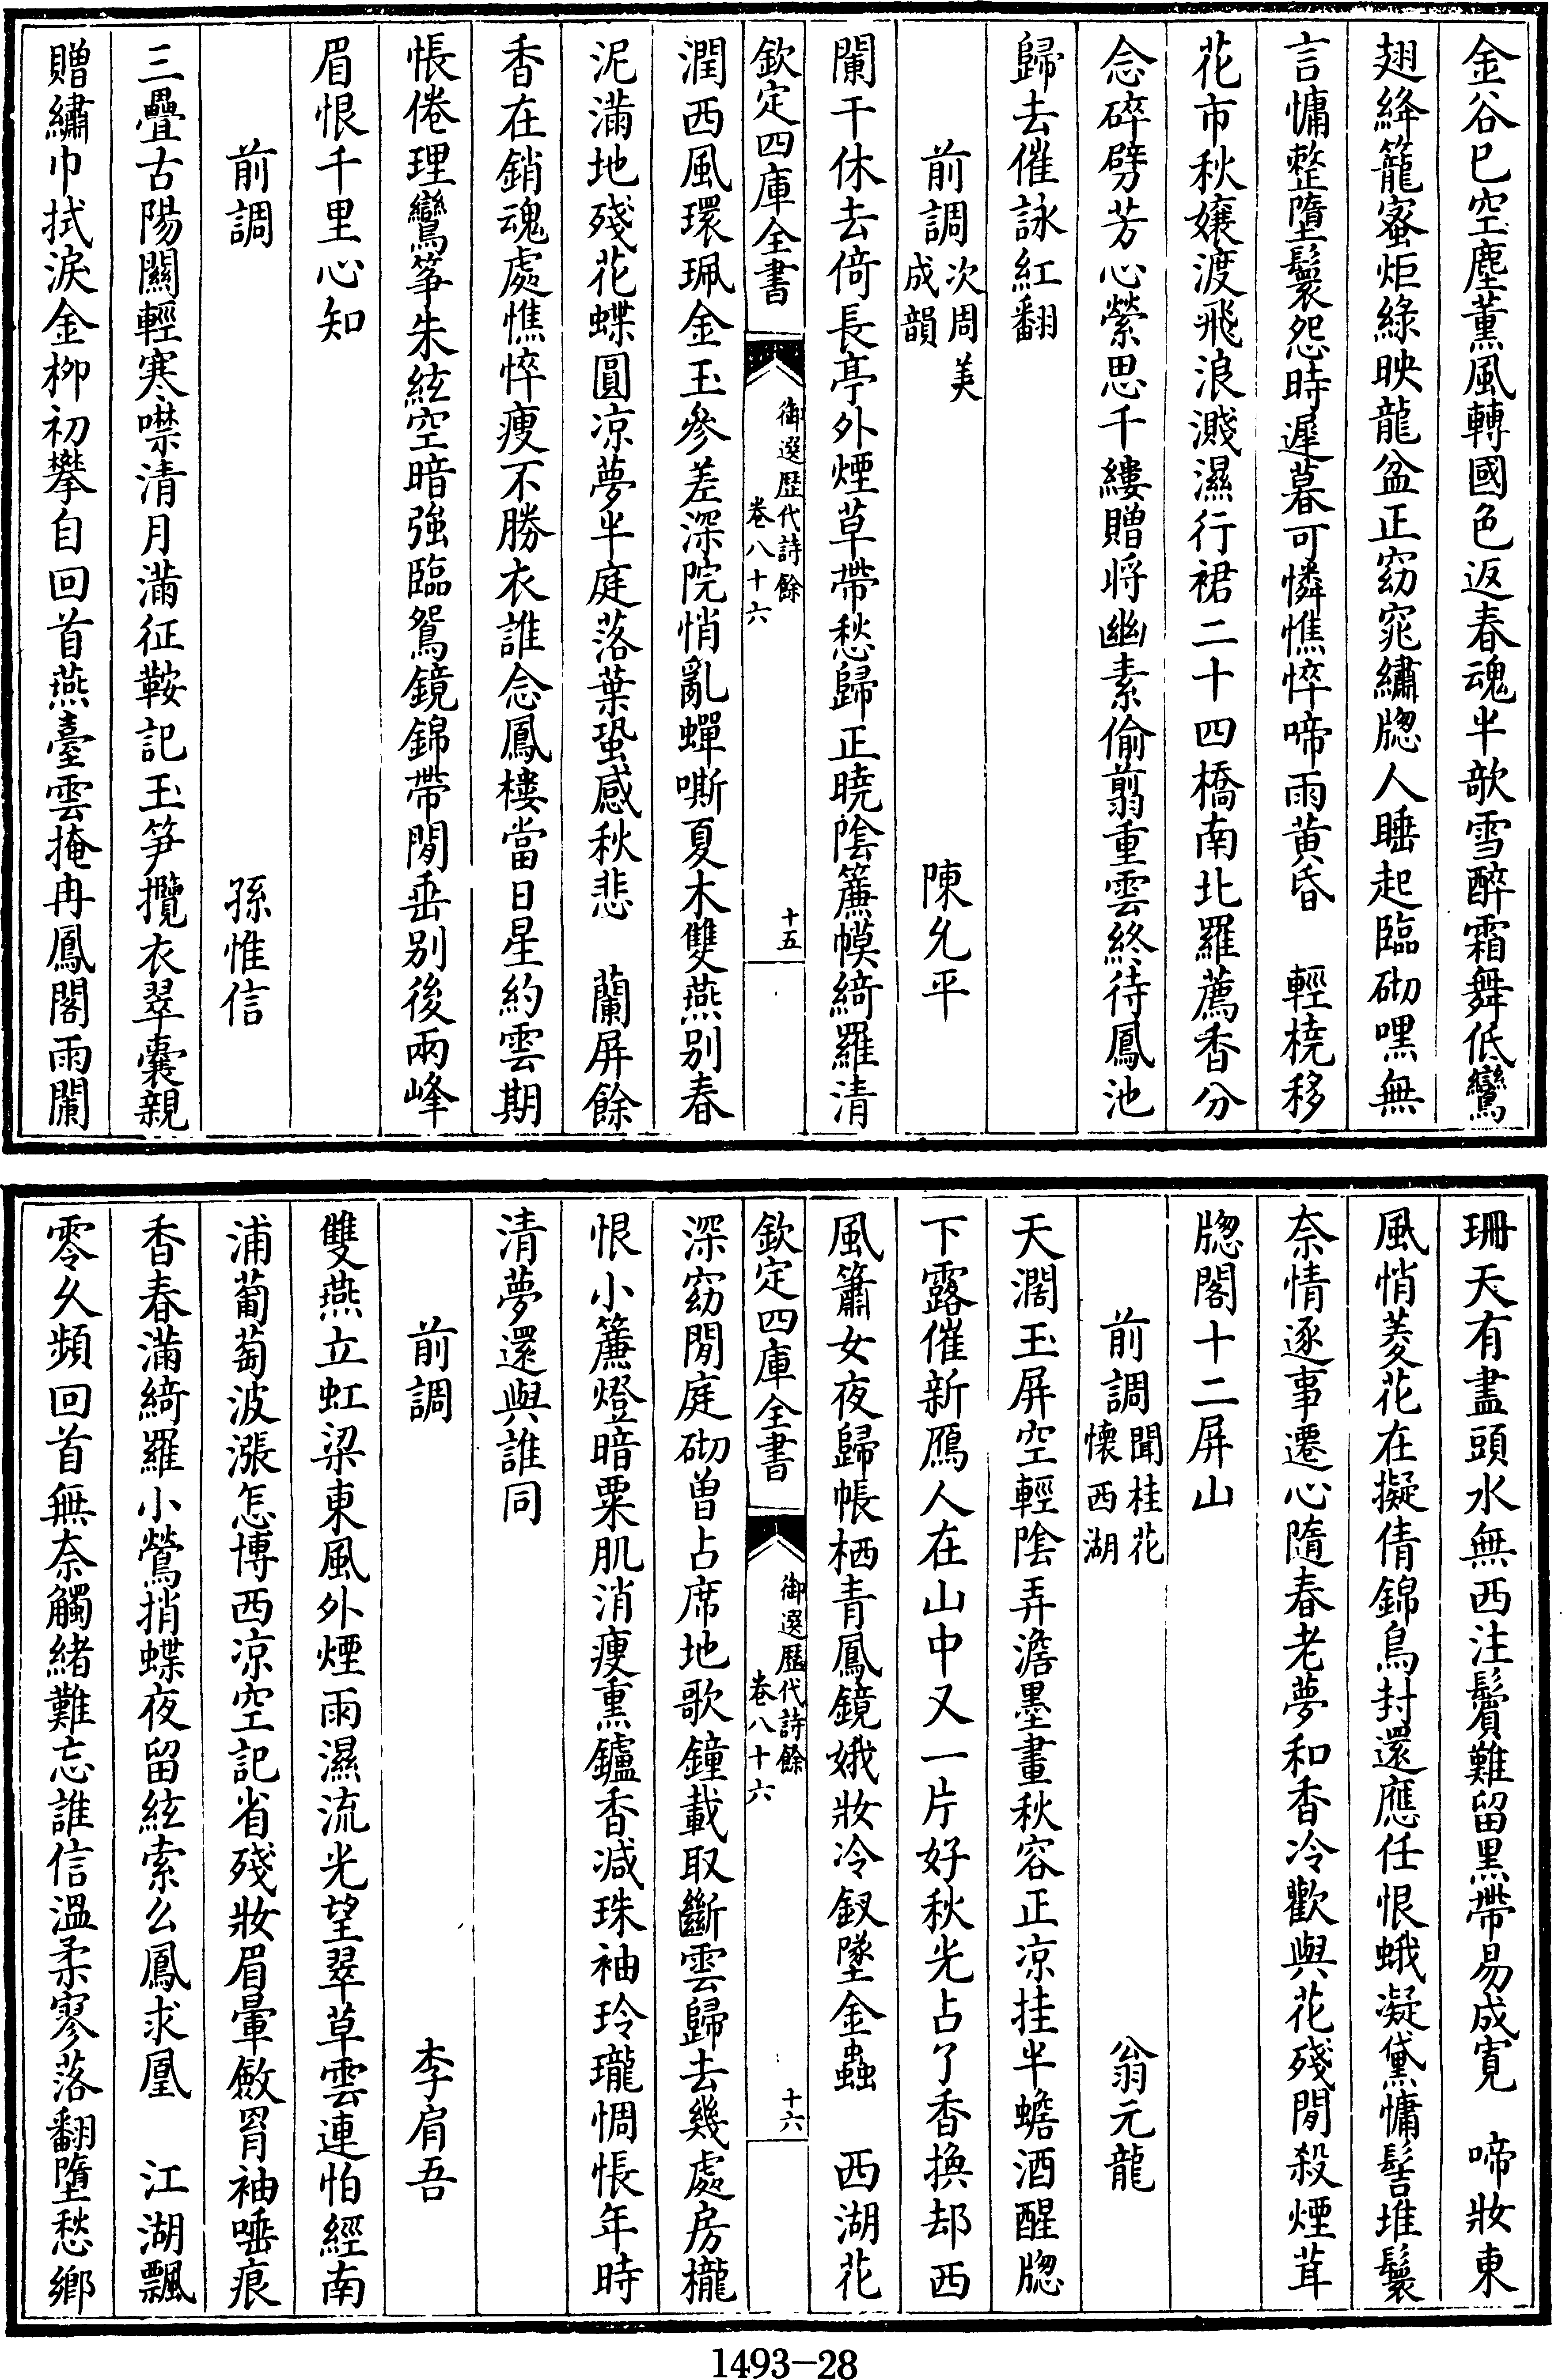 金谷已空塵薰風轉國色返春魂半欹雪醉霜舞低鸞
翅絳籠蜜炬綠映龍盆正窈窕繡牎人睡起臨砌嘿無
言慵整墮鬟怨時遲暮可憐憔悴啼雨黄昏　輕橈移
花市秋孃渡飛浪濺濕行裙二十四橋南北羅薦香分
念碎劈芳心縈思千縷贈將幽素偷翦重雲終待鳳池
歸去催詠紅翻
前調次周美成韻　陳允平
闌干休去倚長亭外煙草帶愁歸正曉陰簾幙綺羅清
欽定四庫全書　御選歴代詩餘　卷八十六　十五
潤西風環珮金玉參差深院悄亂蟬嘶夏木雙燕别春
泥滿地殘花蝶圓凉夢半庭落葉蛩感秋悲　蘭屏餘
香在銷魂處憔悴瘦不勝衣誰念鳳樓當日星約雲期
悵倦理鸞筝朱絃空暗強臨鴛鏡錦帶閒垂别後兩峰
眉恨千里心知
前調　孫惟信
三疊古陽關輕寒噤清月滿征鞍記玉笋攬衣翠囊親
贈繡巾拭淚金栁初攀自回首燕臺雲掩冉鳳閣雨闌
珊天有盡頭水無西注鬢難留黒帶易成寛　啼妝東
風悄菱花在擬倩錦鳥封還應任恨蛾凝黛慵髻堆鬟
奈情逐事遷心隨春老夢和香冷歡與花殘閒殺煙茸
牎閣十二屏山
前調聞桂花懷西湖　翁元龍
天濶玉屏空輕陰弄澹墨畫秋容正凉挂半蟾酒醒牎
下露催新鴈人在山中又一片好秋光占了香換却西
風簫女夜歸帳栖青鳳鏡娥妝冷釵墜金蟲　西湖花
欽定四庫全書　御選歴代詩餘　卷八十六　十六
深窈閒庭砌曾占席地歌鐘載取斷雲歸去幾處房櫳
恨小簾燈暗粟肌消瘦熏鑪香减珠袖玲瓏惆悵年時
清夢還與誰同
前調　李肩吾
雙燕立虹梁東風外煙雨濕流光望翠草雲連怕經南
浦葡萄波漲怎博西凉空記省殘妝眉暈斂罥袖唾痕
香春滿綺羅小鶯捎蝶夜留絃索么鳳求凰　江湖飄
零久頻回首無奈觸緒難忘誰信温柔寥落翻墮愁鄉
1493－28